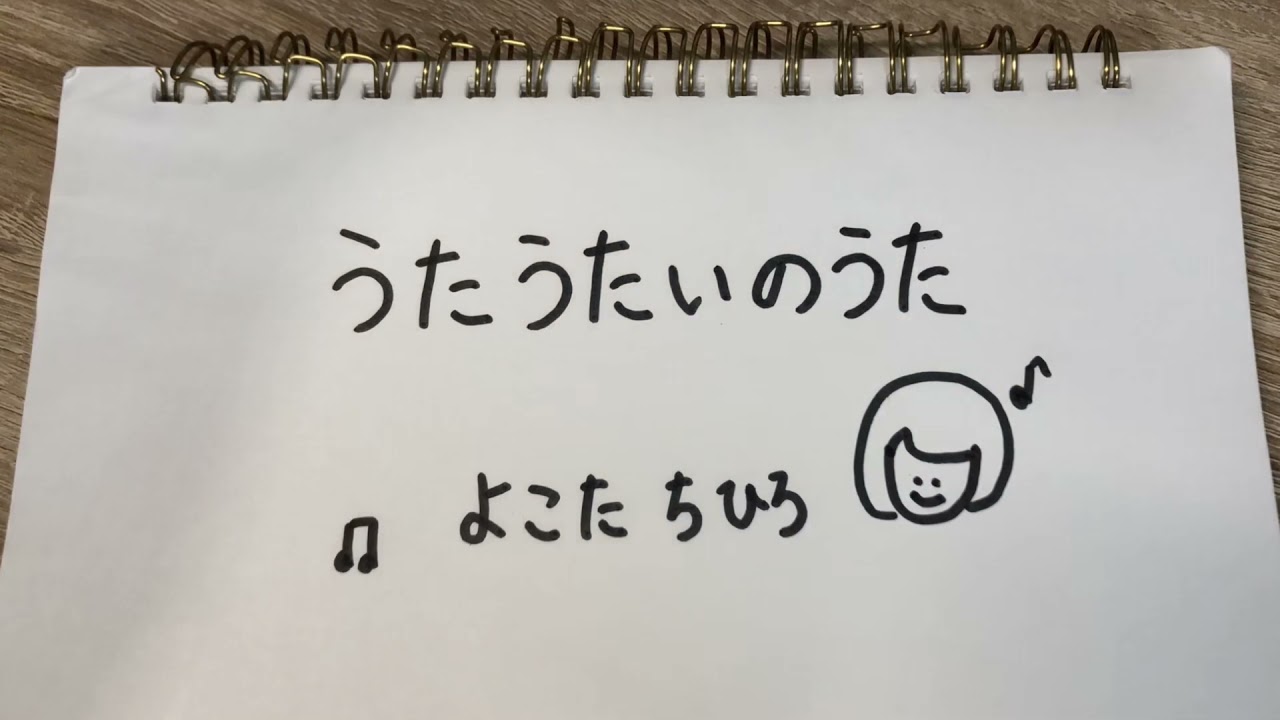 うたうたいのうた
よこた ちひろ